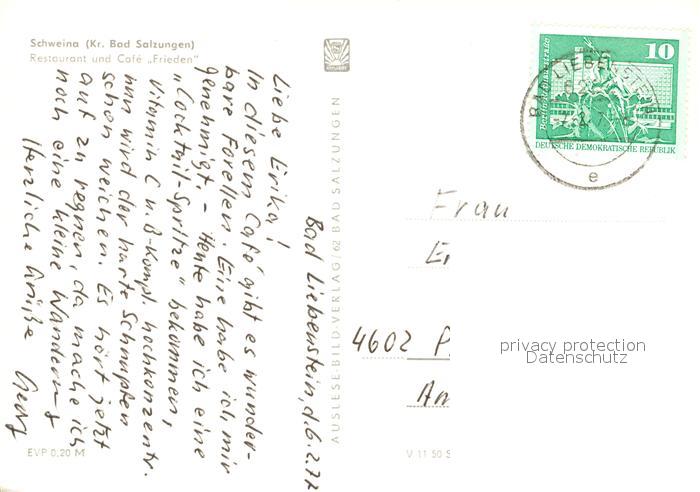 Schweina (Kr. Bad Salzungen)
Restaurant und Café „Frieden"
Bad Liebenstein, d. 6.2.77
Liebe Erika!
In diesem Café gibt es wunder-
bare Forellen. Eine habe ich mir
genehmigt. - Heute habe ich eine
„Cocktail-Spritze" bekommen,
Vitamin C u. B-Kompl. hochkonzentr.
nun wird der harte Schnupfen
schon weichen. Es hört jetzt
auf zu regnen, da mache ich
noch eine kleine Wanderung
Herzliche Grüße
Georg
EVP 0,20 M
AUSLESEBILD-VERLAG / 62 BAD SALZUNGEN
V 11 50 S
10
DEUTSCHE DEMOKRATISCHE REPUBLIK
BAD LIEBENSTEIN
e
Frau
4602 P
privacy protection
Datenschutz